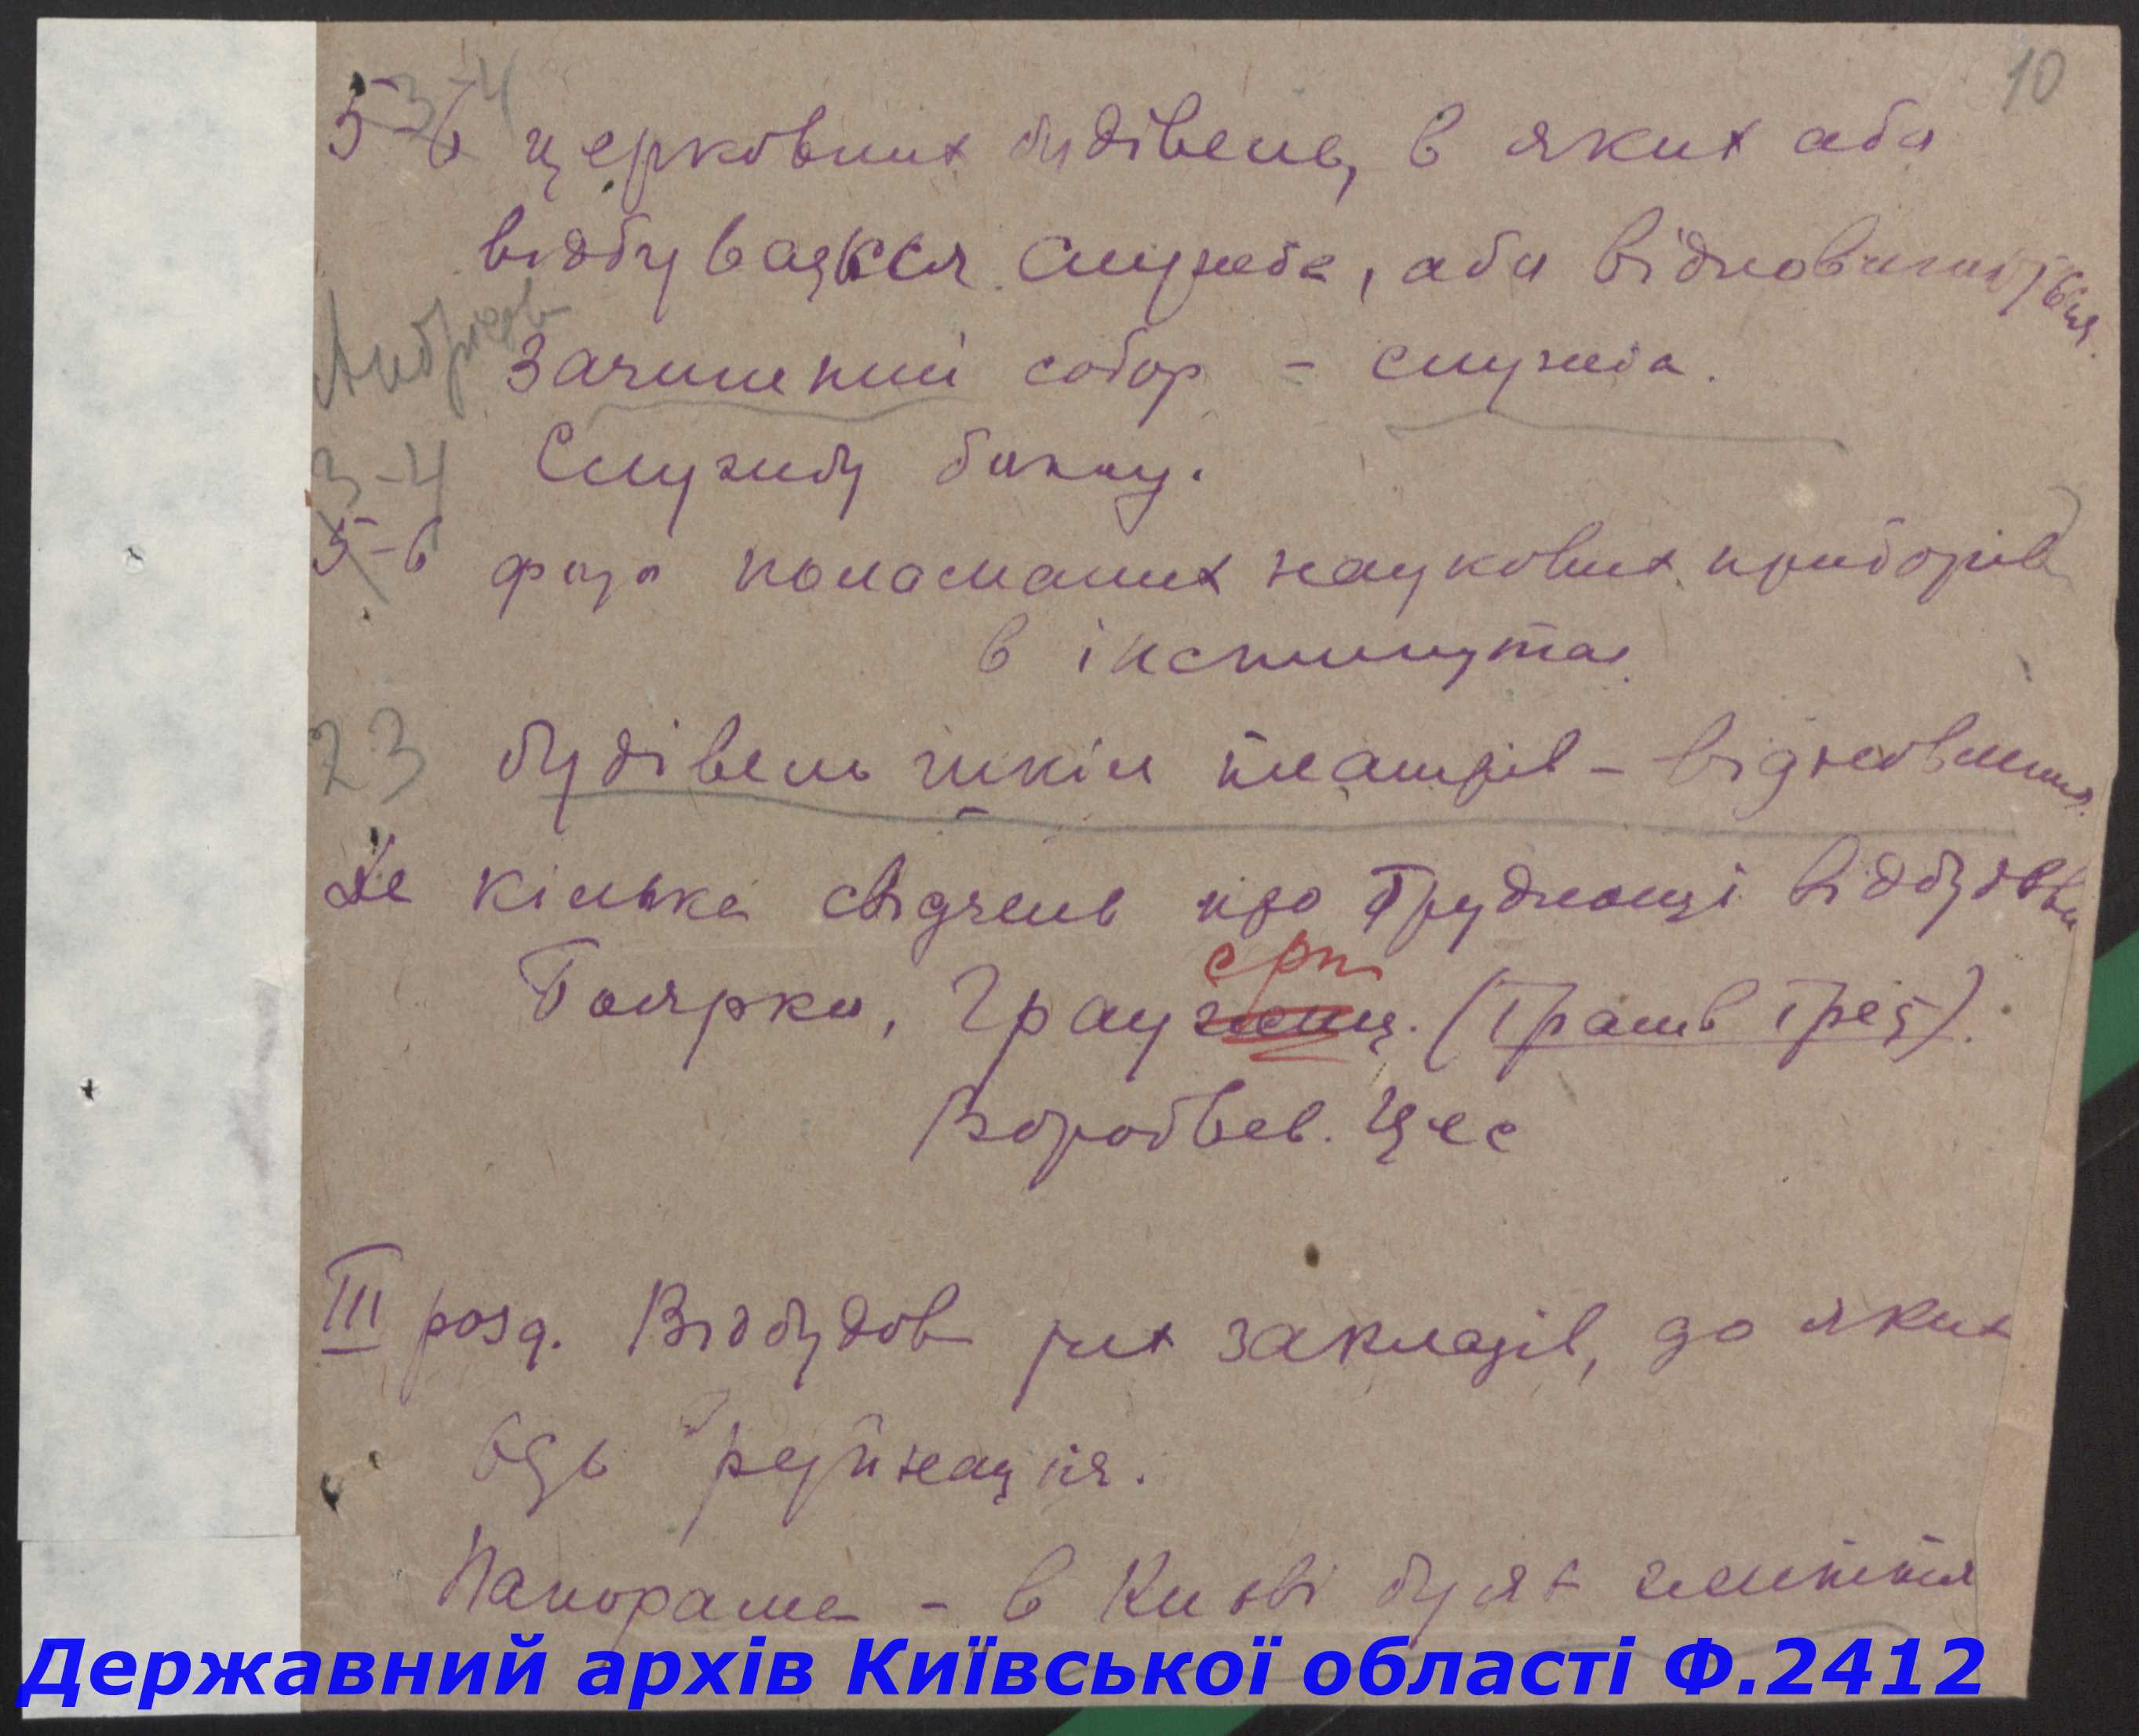 10
3-4
5-6 церковних будівель, в яких або
відбувається служба, або відновлюється.
Андріев
зачинений собор - служба.
Службу
3-4
5-6 фото поломаних наукових приборів
в інститутах
23 будівель шкіл театрів - відновлення.
Де кілька свідчень про труднощі відбудови
Боярко, (Трамв трест).
Воробьев.
III розд. Відбудов тих закладів, до яких
Панорама - в Києві буяє життя
Державний архів Київської області Ф.2412